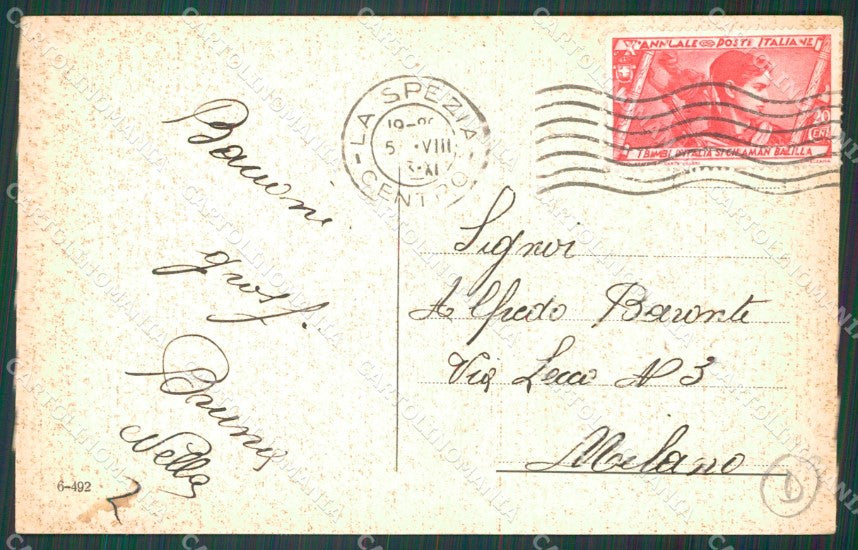 Xº ANNUALE POSTE ITALIANE
20
CENT
I BIMBI D'ITALIA SI CHIAMAN BALILLA
LA SPEZIA
5 VIII
XI
CENTRO
Bacioni
gross.
Bruna
Nella
Signori
Alfredo Baronte
Via Lecco N 3
Milano
6-492
CARTOLINOMANIA